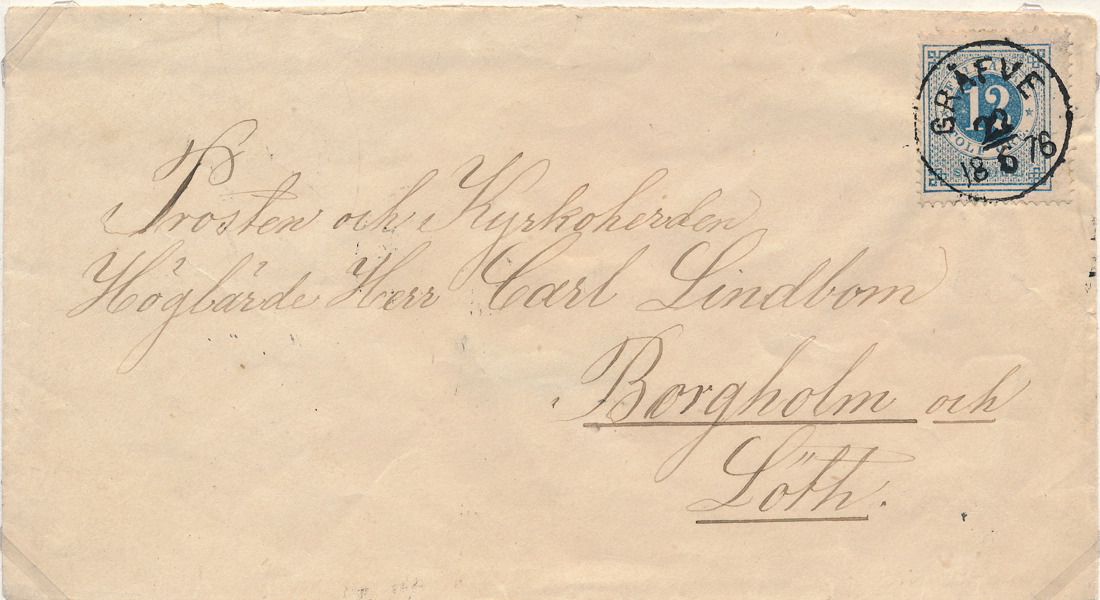 GRÅFVE
12
22
18 6 76
Prosten och Kyrkoherden
Höglärde Herr Carl Lindbom
Borgholm och
Löth.